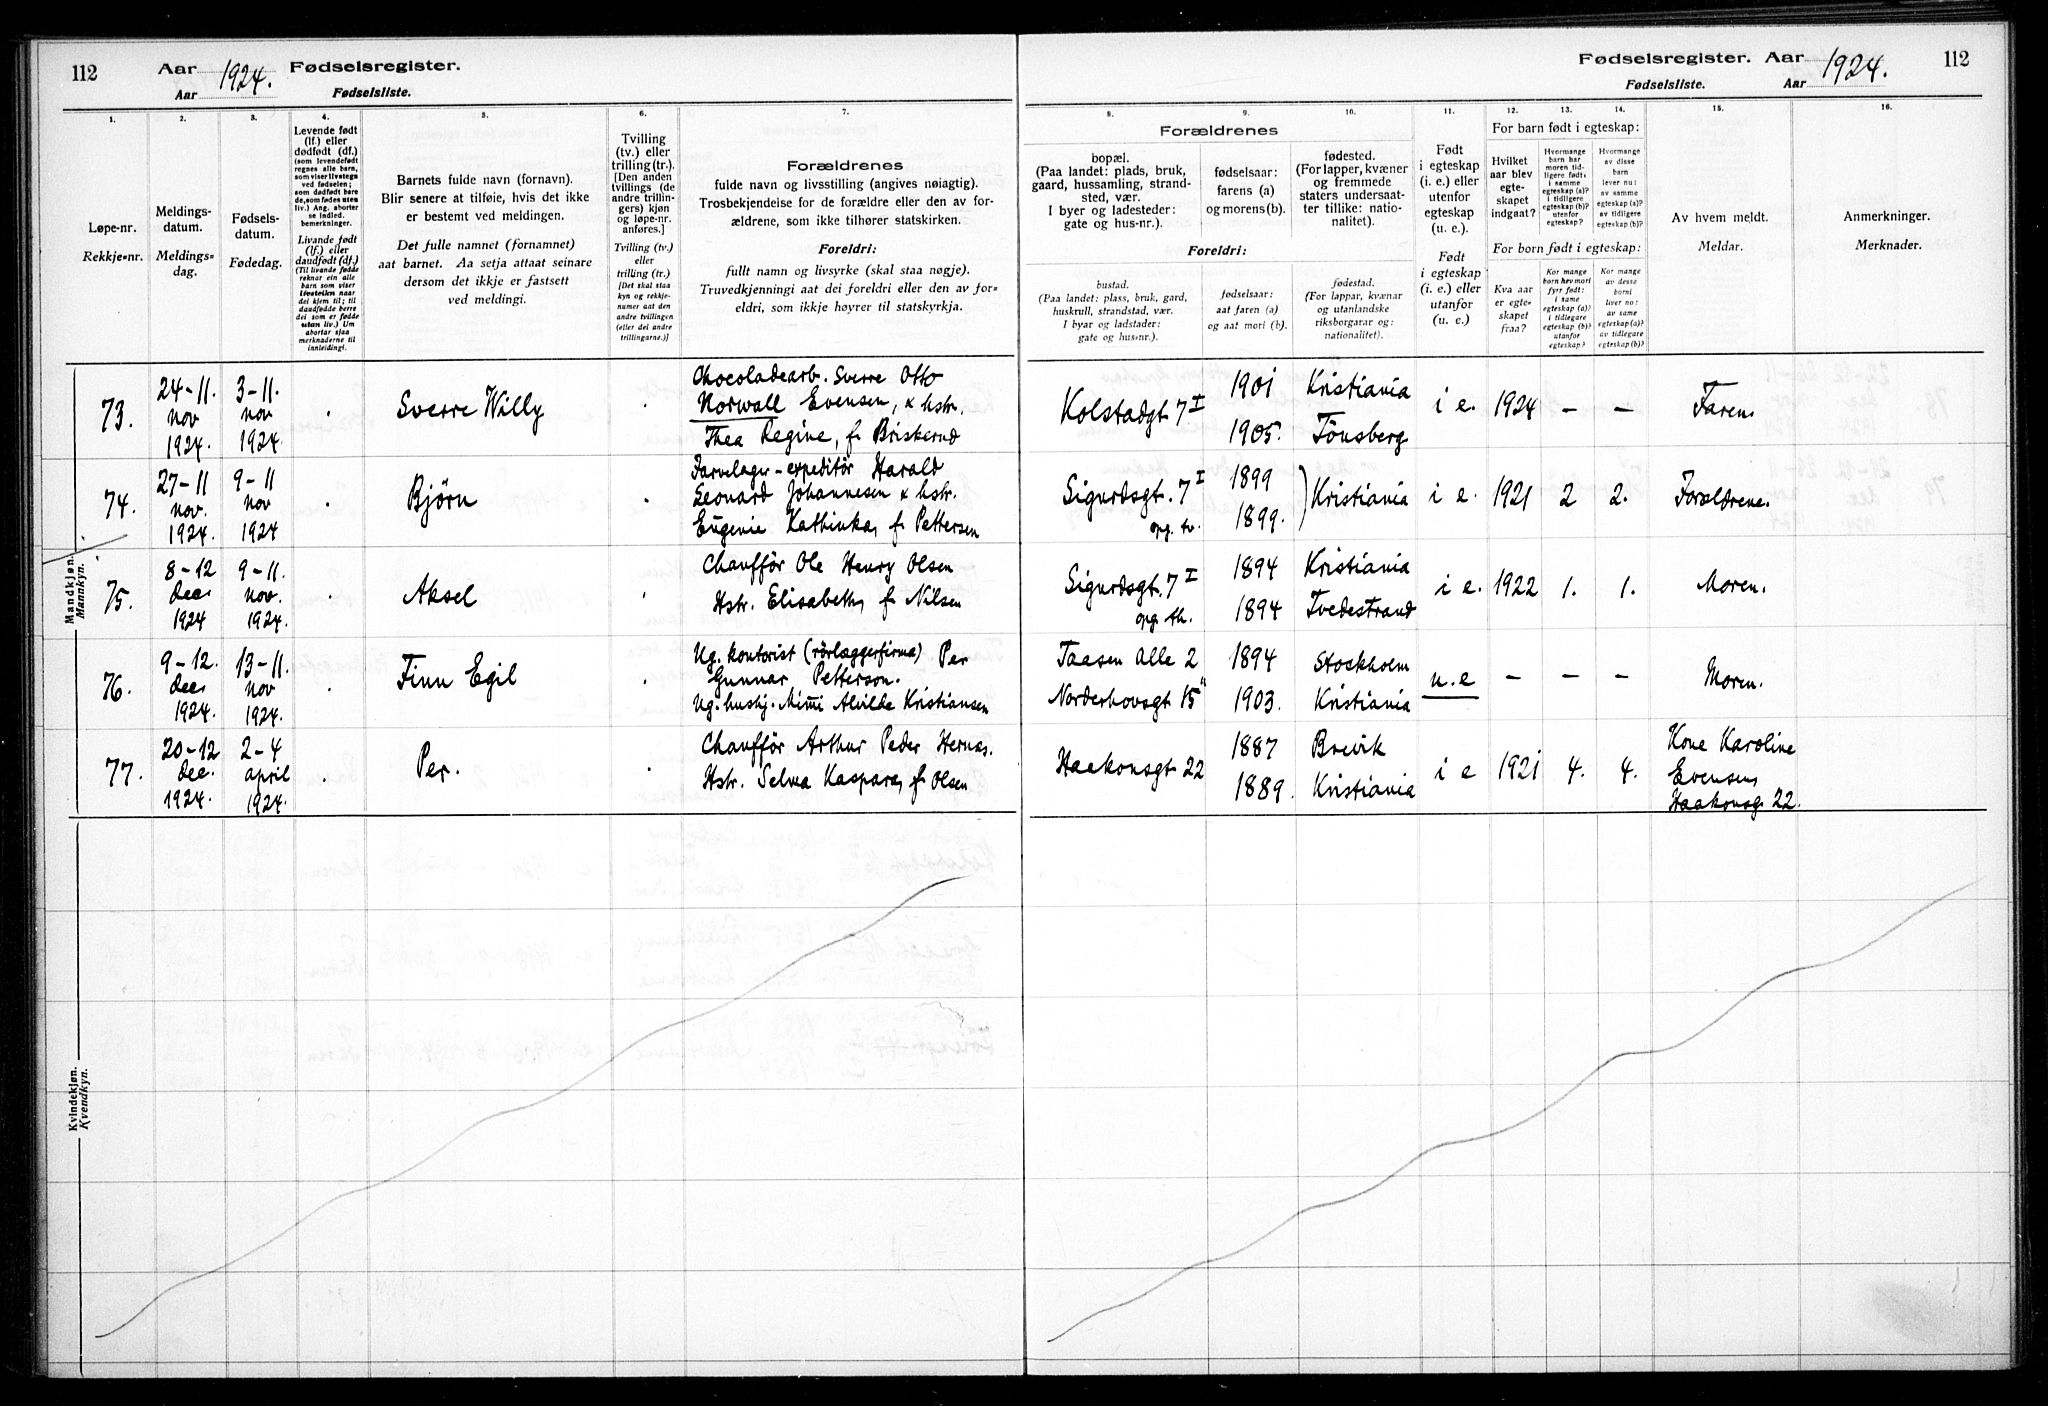 112 Aar 1924. Fødselsregister.
Aar Fødselsliste.
1. 2. 3. 4. 5. 6. 7.
Løpe-nr.
Rekkje-nr.
Meldings-
datum.
Meldings-
dag.
Fødsels-
datum.
Fødedag.
Levende født
(lf.) eller
dødfødt (df.)
(som levendefødt
regnes alle barn,
som viser livstegn
ved fødselen;
som dødfødt bare
de, som fødes uten
liv.) Ang. aborter
se indled.
bemerkninger.
Livande født
(lf.) eller
daudfødt (df.)
(Til livande fødde
reknar ein alle
barn som viser
livsteikn naar
dei kjem til; til
daudfødde berre
dei som er fødde
utan liv.) Um
abortar sjaa
merknaderne til
innleidingi.
Barnets fulde navn (fornavn).
Blir senere at tilføie, hvis det ikke
er bestemt ved meldingen.
Det fulle namnet (fornamnet)
aat barnet. Aa setja attaat seinare
dersom det ikkje er fastsett
ved meldingi.
Tvilling
(tv.) eller
trilling (tr.).
[Den anden
tvillings (de
andre trillin-
gers) kjøn
og løpe-nr.
anføres.]
Tvilling (tv.)
eller
trilling (tr.)
[Det skal staa
kyn og rekkje-
numer aat den
andre tvillingen
(eller dei andre
trillingarne.)]
Forældrenes
fulde navn og livsstilling (angives nøiagtig).
Trosbekjendelse for de forældre eller den av for-
ældrene, som ikke tilhører statskirken.
Foreldri:
fullt namn og livsyrke (skal staa nøgje).
Truvedkjenningi aat dei foreldri eller den av for-
eldri, som ikkje høyrer til statskyrkja.
Mandkjøn.
Mannkyn.
73. 24-11. nov 1924. 3-11. nov 1924. Sverre Willy
Chocoladearb. Sverre Otto
Norwall Evensen, x hstr.
Thea Regine, f. Briskerud
74. 27-11 nov. 1924. 9-11 nov 1924 Bjørn
Farvelager-expeditör Harald
Leonard Johannesen x hstr.
Eugenie Kathinka, f. Pettersen
75. 8-12 dec. 1924 9-11. nov. 1924. Aksel
Chaufför Ole Henry Olsen
Hstr. Elisabeth, f. Nilsen
76. 9-12. dec. 1924. 13-11. nov 1924. Finn Egil
Ug. kontorist (rörlæggerfirma) Per
Gunnar Petterson.
Ug. hushj. Mimmi Alvilde Kristiansen
77. 20-12 dec. 1924. 2-4 april 1924. Per.
Chauffør Arthur Peder Hernæs.
Hstr. Selma Kaspara, f. Olsen
Kvindekjøn.
Kvendkyn.
Fødselsregister. Aar 1924. 112
Fødselsliste. Aar
8. 9. 10. 11. 12. 13. 14. 15. 16.
Forældrenes
bopæl.
(Paa landet: plads, bruk,
gaard, hussamling, strand-
sted, vær.
I byer og ladesteder:
gate og hus-nr.).
fødselsaar:
farens (a)
og morens (b).
fødested.
(For lapper, kvæner
og fremmede
staters undersaat-
ter tillike: natio-
nalitet).
Foreldri:
bustad.
(Paa landet: plass, bruk, gard,
huskrull, strandstad, vær.
I byar og ladstader:
gate og hus-nr.).
fødselsaar:
aat faren (a)
og aat mori (b).
fødestad.
(For lappar, kvænar
og utanlandske
riksborgarar og:
nationalitet).
Født
i egteskap
(i. e.) eller
utenfor
egteskap
(u. e.).
Født
i egteskap
(i. e.) eller
utanfor
(u. e.)
For barn født i egteskap:
Hvilket
aar blev
egte-
skapet
indgaat?
Hvormange
barn har
moren tid-
ligere født:
i samme
egteskap (a)?
i tidligere
egteskap (b)?
utenfor
egteskap?
Hvormange
av disse
barn
lever nu:
av samme
egteskap (a)?
av tidligere
egteskap (b)?
For born født i egteskap:
Kva aar
er egte-
skapet
fraa?
Kor mange
born hev mori
fyrr født:
i same
egteskap (a)?
i tidlegare
egteskap (b)?
utanfor
egteskap?
Kor mange
av desse
borni
liver no:
av same
egteskap (a)?
av tidlegare
egteskap (b)?
Av hvem meldt.
Meldar.
Anmerkninger.
Merknader.
Kolstadgt. 7 I 1901 1905. Kristiania Tönsberg i e. 1924 – – Faren
Sigurdsgt. 7 I opg. tv. 1899 1899. Kristiania i e. 1921 2 2. Forældrene.
Sigurdsgt. 7 I opg. th. 1894 1894 Kristiania Tvedestrand i e. 1922 1. 1. Moren.
Taasen Alle 2 1894 Stockholm u. e – – – Moren.
Norderhovsgt 15 II 1903. Kristiania
Haakonsgt 22 1887 1889. Brevik Kristiania i e 1921 4. 4. Kone Karoline
Evensen,
Haakonsg. 22.